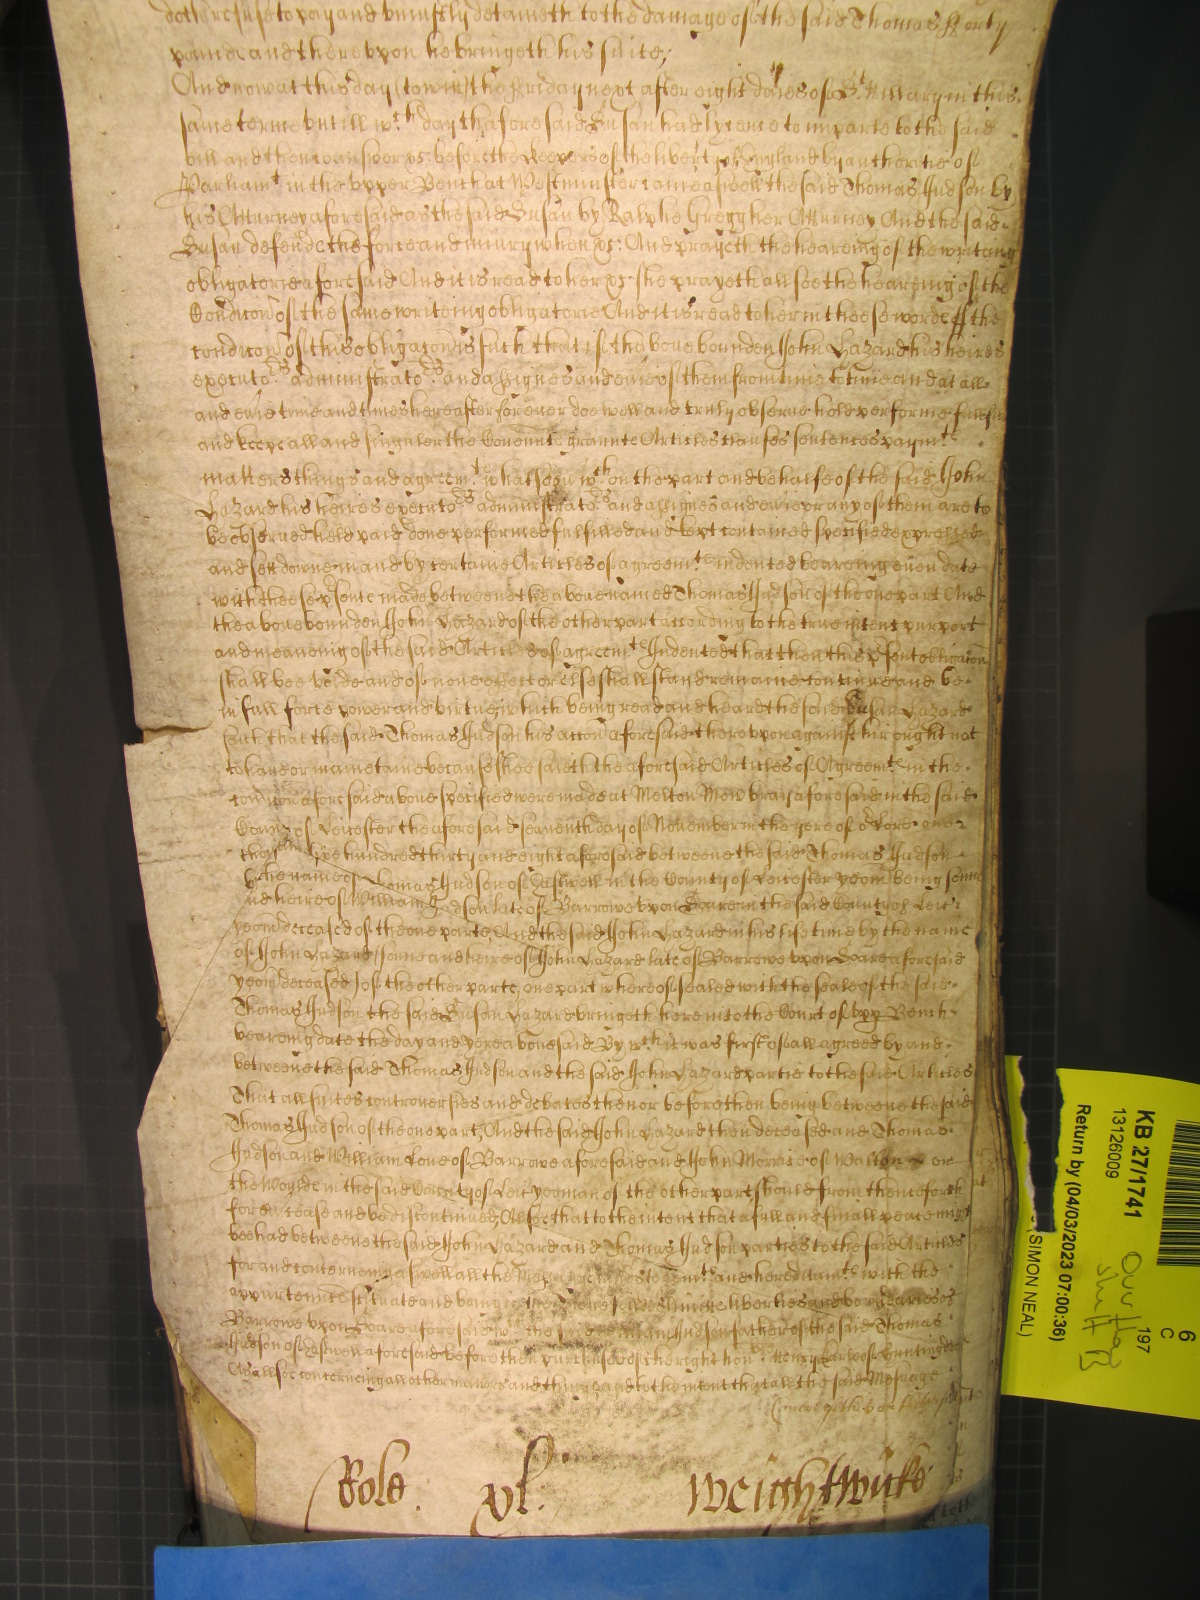 doth refuse to pay and uniustly detaineth to the damage of the said Thomas fforty
pounde and thereupon he bringeth his suite;
And now at this day (to wit) the ffriday next after eight daies of St. Hillary in this
same terme untill wch. day the aforesaid Susan had lycence to imparle to the said
bill and then to answer &c. before the Keepers of the liberty of England by authoritie of
Parliamt. in the upper Bench at Westminster came aswell the said Thomas Judson by
his Atturney aforesaid as the said Susan by Ralphe Gregg her Atturney And the said
Susan defendes the force and iniury when &c. And prayeth the heareing of the writeing
obligatorie aforesaid And it is read to her &c. she prayeth allsoe the heareing of the
Condicon of the same writeing obligatorie And it is read to her in theese wordes ff the
condicon of this obligacon is such that if the above bounden John Lazard his heires
executors. administrators. and assignes and evie of them from time to time and at all
and evie time and times hereafter for ever doe well and truly observe hold performe fulfill
and keepe all and singuler the Covennte Graunte Articles clauses sentences paymte
matters things and agreemt. whatsoevr wch on the part and behalfe of the said John
Lazard his heires executors administrators and assignes and evie or any of them are to
be observed held paid done performed fulfilled and kept contained specified expressed
and sett downe in and by certaine Articles of agreemte indented beareing even date
with theese psente made betweene the above named Thomas Judson of the one part And
the above bounden John Lazard of the other part according to the true intent purport
and meaneing of the said Articles of agreemte Indented that then this psent obligacon
shall bee voide and of none effect or else shall stand remaine continue and be
in full force power and virtue which being read and heard the said Susan Lazard
saith that the said Thomas Judson his accon aforesaid thereupon against her ought not
to have or maintaine because shee saith the aforesaid Articles of Agreemte in the
condicon aforesaid above specified were made at Melton Mowbray aforesaid in the said
County of Leicester the aforesaid seventh day of November in the yeere of or Lord one
thousand sixe hundred thirty and eight aforesaid betweene the said Thomas Judson
by the name of Thomas Judson of in the County of Leicester yeom being sonne
and heire of William Judson late of Barrowe upon Soare in the said County of Leic.
yeom deceased of the one parte, And the said John Lazard in his life time by the name
of John Lazard sonne and heire of John Lazard late of Barrowe upon Soare aforesaid
yeom deceased of the other parte, one part whereof sealed with the seale of the said
Thomas Judson the said Susan Lazard bringeth here into the Court of upp Bench
beareing date the day and yere abovesaid By wch. it was first of all agreed by and
betweene the said Thomas Judson and the said John Lazard partie to the said Articles
That all suites controversies and debates then or before then being betweene the said
Thomas Judson of the one part, And the said John Lazard then deceased and Thomas
Judson and William Love of Barrowe aforesaid and John Morrice of Walton on
the Woulde in the said County of Leic yeoman of the other part should from thenceforth
for ev cease and be discontinued, Alsoe that to the intent that a full and finall peace might
bee had betweene the said John Lazard and Thomas Judson parties to the said Articles
for and concerneing aswell all the and hereditamte with the
appurtennce scituate and being in the liberties and boundaries of
Barrowe upon Soare aforesaid wch the said William Judson father of the said Thomas
Judson of aforesaid before then purchased of the right honble Henry Earle of Huntingdon
As allsoe concerneing all other matters and things, and to the intent that all the said Messuage
Rolle xl. Weightwicke
KB 27/1741
13126009
Return by (04/03/2023 07:00:36)
SIMON NEAL)
197
6
C